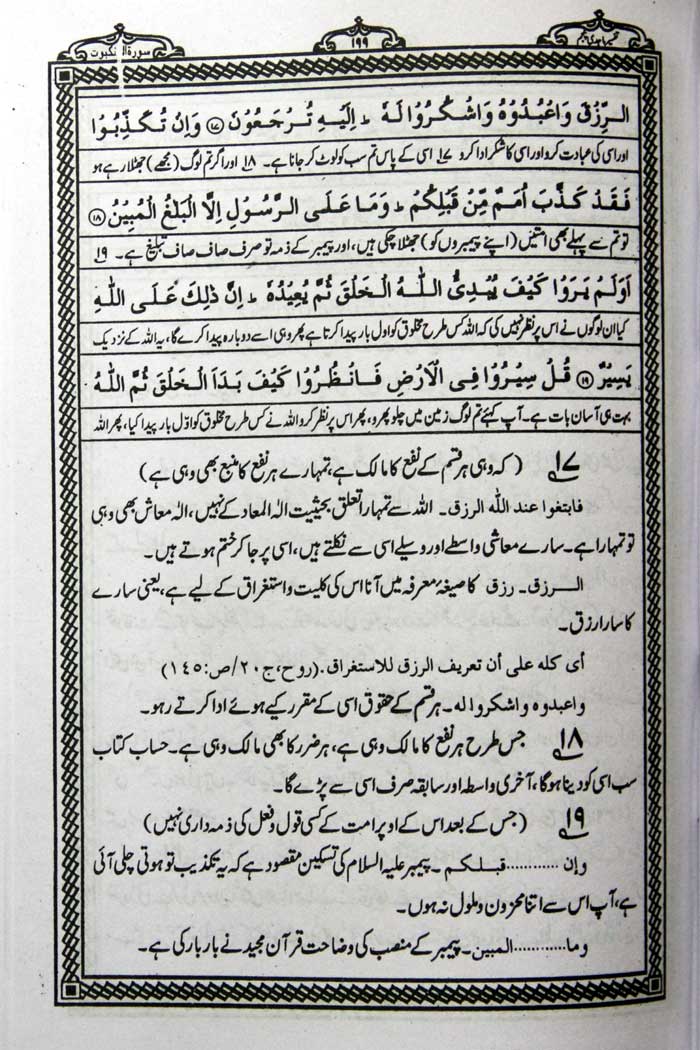 تفسیر ماجدی پنجم
۱۹۹
سورۃ العنکبوت
الرِّزْقَ وَاعْبُدُوْهُ وَاشْكُرُوْا لَهٗ ؕ اِلَيْهِ تُرْجَعُوْنَ ﴿۱۷﴾ وَاِنْ تُكَذِّبُوْا
اور اسی کی عبادت کرو اور اسی کا شکر ادا کرو ۱۷ اسی کے پاس تم سب کو لوٹ کر جانا ہے۔ ۱۸ اور اگر تم لوگ (مجھے) جھٹلا رہے ہو
فَقَدْ كَذَّبَ اُمَمٌ مِّنْ قَبْلِكُمْ ؕ وَمَا عَلَى الرَّسُوْلِ اِلَّا الْبَلٰغُ الْمُبِيْنُ ﴿۱۸﴾
تو تم سے پہلے بھی امتیں (اپنے پیمبروں کو) جھٹلا چکی ہیں، اور پیمبر کے ذمہ تو صرف صاف صاف تبلیغ ہے۔ ۱۹
اَوَلَمْ يَرَوْا كَيْفَ يُبْدِئُ اللّٰهُ الْخَلْقَ ثُمَّ يُعِيْدُهٗ ؕ اِنَّ ذٰلِكَ عَلَى اللّٰهِ
کیا ان لوگوں نے اس پر نظر نہیں کی کہ اللہ کس طرح مخلوق کو اول بار پیدا کرتا ہے پھر وہی اسے دوبارہ پیدا کرے گا، یہ اللہ کے نزدیک
يَسِيْرٌ ﴿۱۹﴾ قُلْ سِيْرُوْا فِى الْاَرْضِ فَانْظُرُوْا كَيْفَ بَدَاَ الْخَلْقَ ثُمَّ اللّٰهُ
بہت ہی آسان بات ہے۔ آپ کہئے تم لوگ زمین میں چلو پھرو، پھر اس پر نظر کرو اللہ نے کس طرح مخلوق کو اوّل بار پیدا کیا، پھر اللہ
۱۷ (کہ وہی ہر قسم کے نفع کا مالک ہے، تمہارے ہر نفع کا منبع بھی وہی ہے)
فابتغوا عند اللہ الرزق۔ اللہ سے تمہارا تعلق بحیثیت الٰہ المعاد کے نہیں، الٰہ معاش بھی وہی
تو تمہارا ہے۔ سارے معاشی واسطے اور وسیلے اسی سے نکلتے ہیں، اسی پر جا کر ختم ہوتے ہیں۔
الرزق۔ رزق کا صیغۂ معرفہ میں آنا اس کی کلیت و استغراق کے لیے ہے، یعنی سارے
کا سارا رزق۔
أی کله علی أن تعریف الرزق للاستغراق. (روح، ج۲۰/ص:۱۴۵)
واعبدوہ واشکروا لہ۔ ہر قسم کے حقوق اسی کے مقرر کیے ہوئے ادا کرتے رہو۔
۱۸ جس طرح ہر نفع کا مالک وہی ہے، ہر ضرر کا بھی مالک وہی ہے۔ حساب کتاب
سب اسی کو دینا ہوگا، آخری واسطہ اور سابقہ صرف اسی سے پڑے گا۔
۱۹ (جس کے بعد اس کے اوپر امت کے کسی قول و فعل کی ذمہ داری نہیں)
وإن ............قبلکم۔ پیمبر علیہ السلام کی تسکین مقصود ہے کہ یہ تکذیب تو ہوتی چلی آئی
ہے، آپ اس سے اتنا محزون و ملول نہ ہوں۔
وما............المبین۔ پیمبر کے منصب کی وضاحت قرآن مجید نے بار بار کی ہے۔